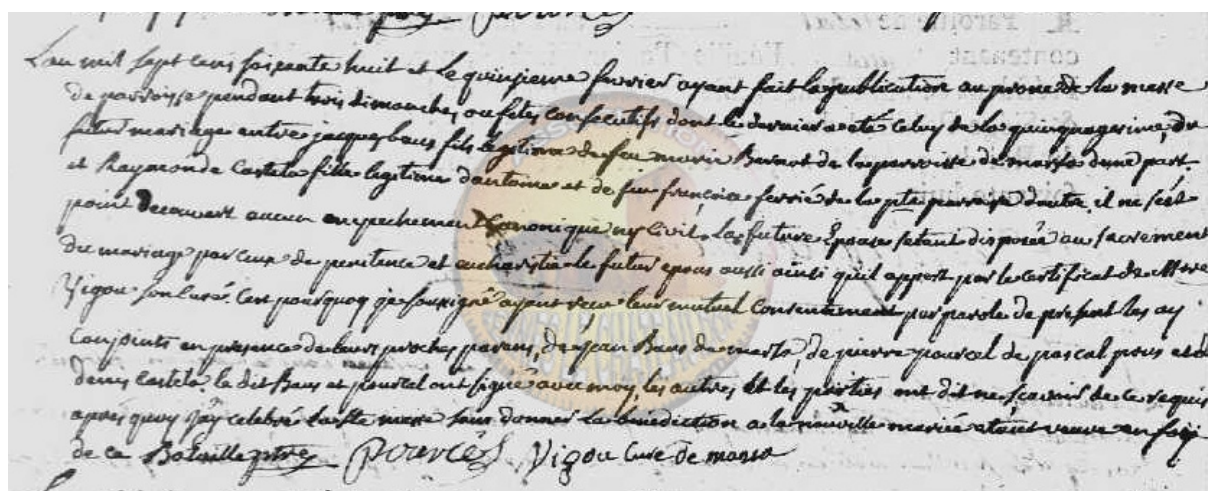 L'an mil sept cens soixante huit et le quinsieme fevrier ayant fait la publication au prone de la messe
de parroisse pendant trois dimanches ou fetes consecutifs dont le dernier a eté celuy de la quinquagesime, du
futur mariage entre jacques baus fils legitime de feu marie Burnot de la parroisse de marsa d'une part
et Raymonde Castela fille legitime d'antoine et de feu françoise ferrié de la pte parroisse d'autre, il ne s'est
point decouvert aucun empechement canonique ny civil, la future Epouse s'etant disposée au sacrement
du mariage par ceux de penitence et eucharistie le futur epous aussi ainsi qu'il appert par le certificat de Mtre
Vigou son curé. C'est pourquoy je soussigné ayant reçu leur mutuel consentement par parole de present les ay
conjoints en presence de leurs proches parens, de jean Baus de marsa, de pierre pourcel de pascal pous et de
denis Castela, le dit Baus et pourcel ont signé avec moy, les autres et les parties ont dit ne sçavoir de ce requis
apres quoy j'ay celebré la Ste messe sans donner la benediction a la nouvelle mariée etant veuve en foy
de ce Bataille ptre Pourcés Vigou Curé de marsa